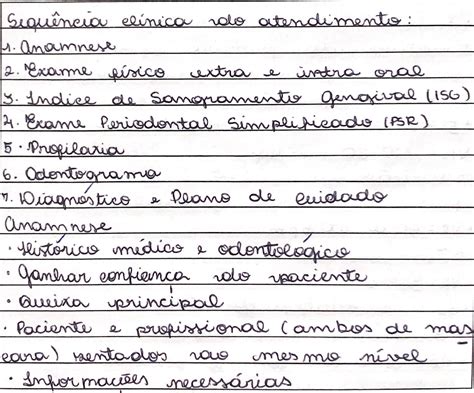 Sequência clínica do atendimento:
1. Anamnese
2. Exame físico extra e intra oral
3. Indice de Sangramento Gengival (ISG)
4. Exame Periodontal Simplificado (PSR)
5. Profilaxia
6. Odontograma
7. Diagnóstico e Plano de cuidado
Anamnese
· Histórico médico e odontológico
· Ganhar confiança do paciente
· Queixa principal
· Paciente e profissional (ambos de mas
cara) sentados no mesmo nível
· Informações necessárias